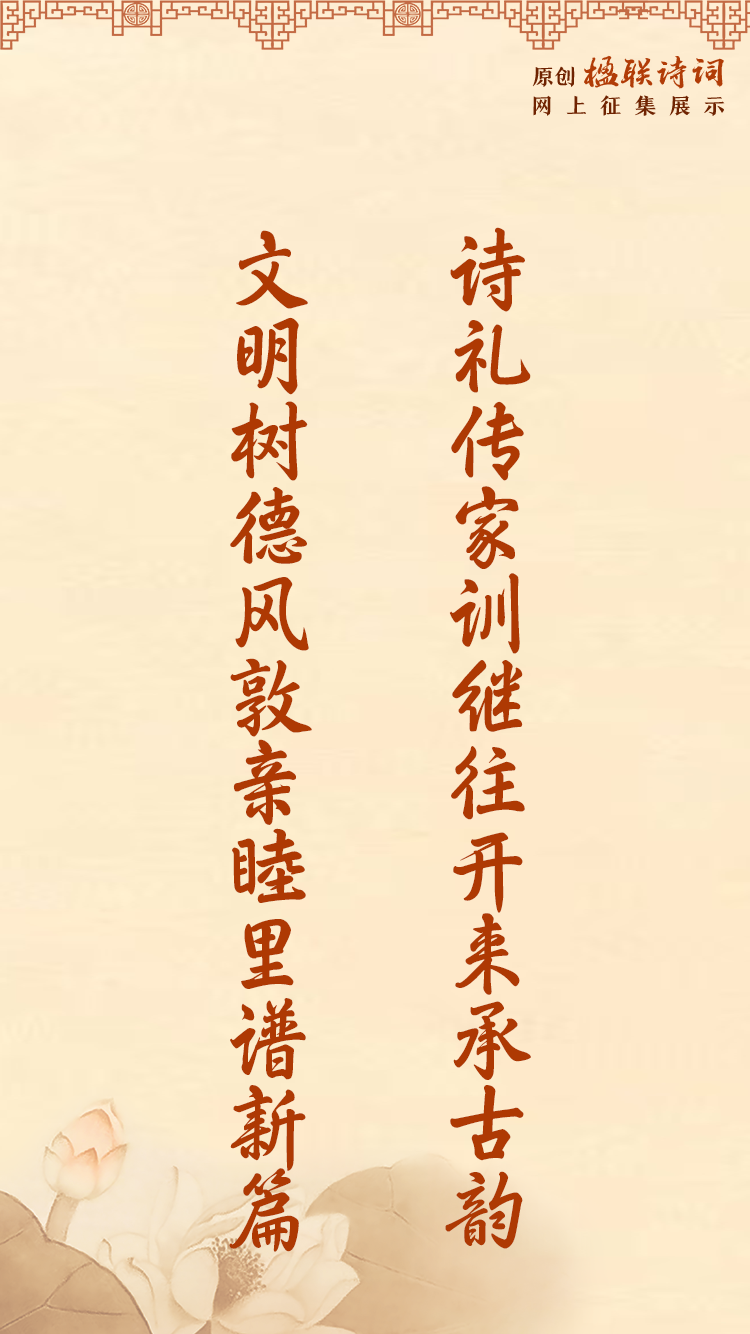 原创 楹联诗词
网上征集展示
诗礼传家训继往开来承古韵
文明树德风敦亲睦里谱新篇